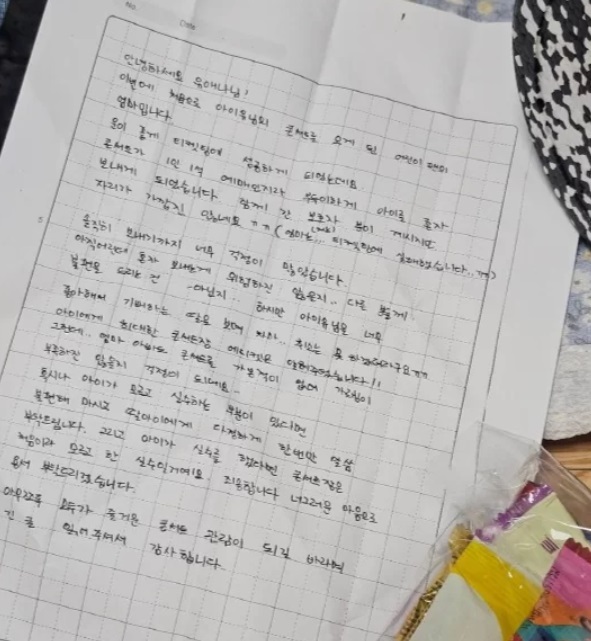 No.
Date
안녕하세요 유애나님!
이번에 처음으로 아이유님의 콘서트를 오게 된 어린이 팬의
엄마입니다.
운이 좋게 티켓팅에 성공하게 되었는데요.
콘서트가 1인 1석 예매인지라 부득이하게 아이를 혼자
보내게 되었습니다. 함께 간 보호자 분이 계시지만
자리가 가깝진 않네요 ㅠㅠ (엄마는... 티켓팅에 실패했습니다..ㅠ)
솔직히 보내기까지 너무 걱정이 많았습니다.
아직 어린데 혼자 보내는게 위험하진 않을지.. 다른 분들께
불편을 드리는 건 아닌지.. 하지만 아이유님을 너무
좋아해서 기뻐하는 딸을 보며 차마.. 취소는 못 하겠더라구요ㅠㅠ
아이에게 최대한 콘서트장 에티켓은 알려주었습니다!!
그런데.. 엄마 아빠도 콘서트를 가본적이 없어 가르침이
부족하진 않을지 걱정이 되네요..
혹시나 아이가 모르고 실수하는 부분이 있다면
불편해 마시고 딸아이에게 다정하게 한번만 말씀
부탁드립니다. 그리고 아이가 실수를 했다면 콘서트장은
처음이라 모르고 한 실수일거예요. 죄송합니다 너그러운 마음으로
용서 부탁드리겠습니다.
아무쪼록 모두가 즐거운 콘서트 관람이 되길 바라며
긴 글 읽어주셔서 감사합니다.